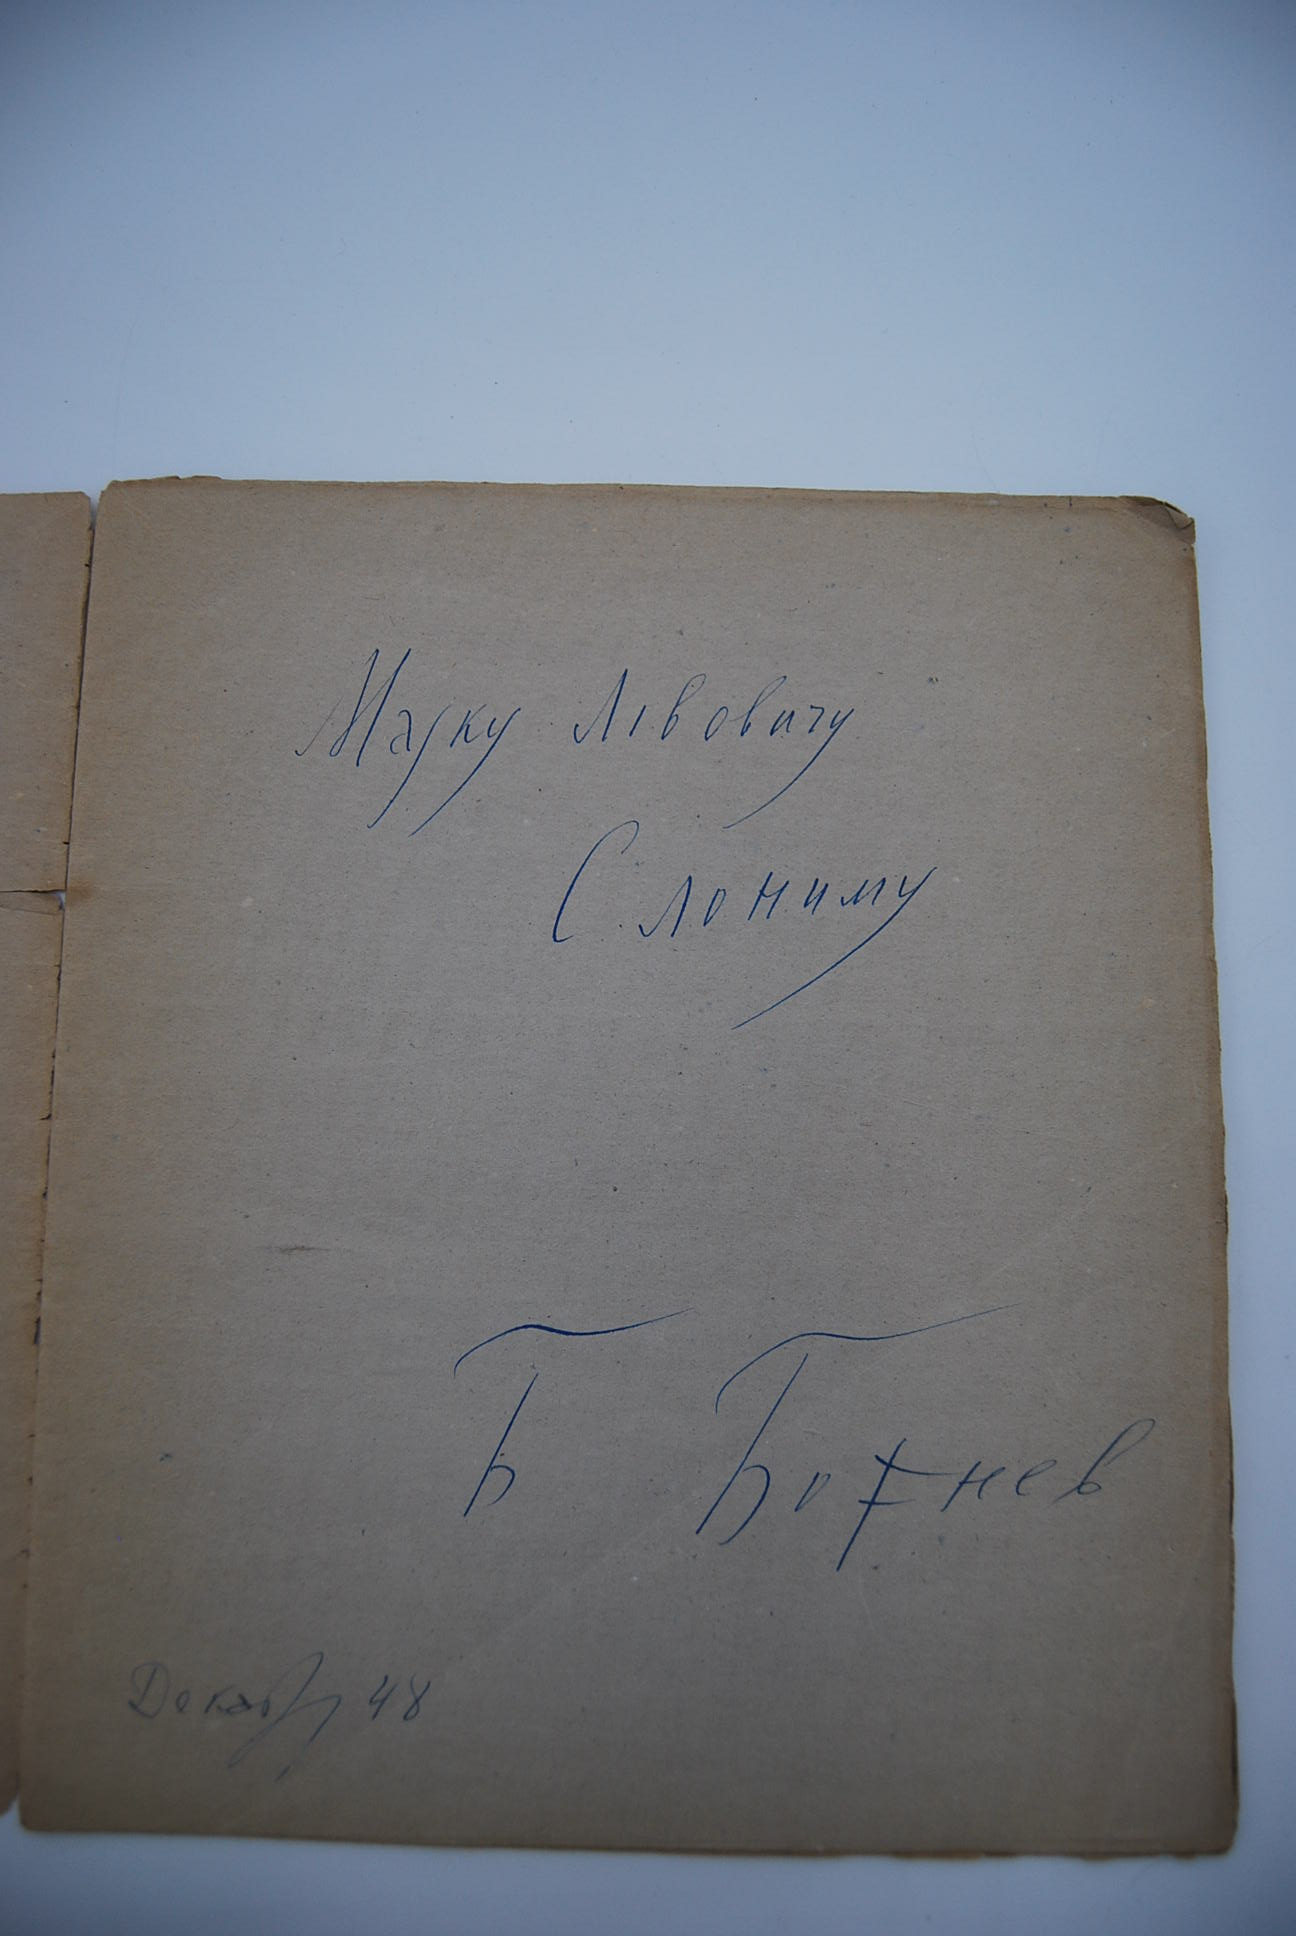 Марку Львовичу
Слониму
Б Божнев
Декабрь 48